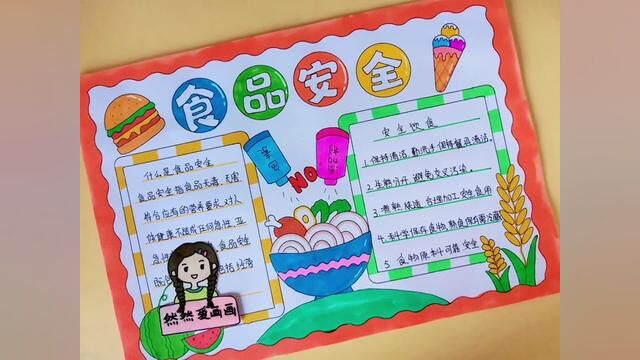 食品安全
什么是食品安全
食品安全指食品无毒、无害
符合应有的营养要求,对人
体健康不造成任何急性、亚
急性
食品安全
既
包括经营
然然爱画画
NO
安全饮食
1.保持清洁,勤洗手保持餐具清洁。
2.生熟分开,避免交叉污染。
3.煮熟
合理加工安全食用
4.科学保存食物,熟食保存需冷藏
5.食物原料可靠安全